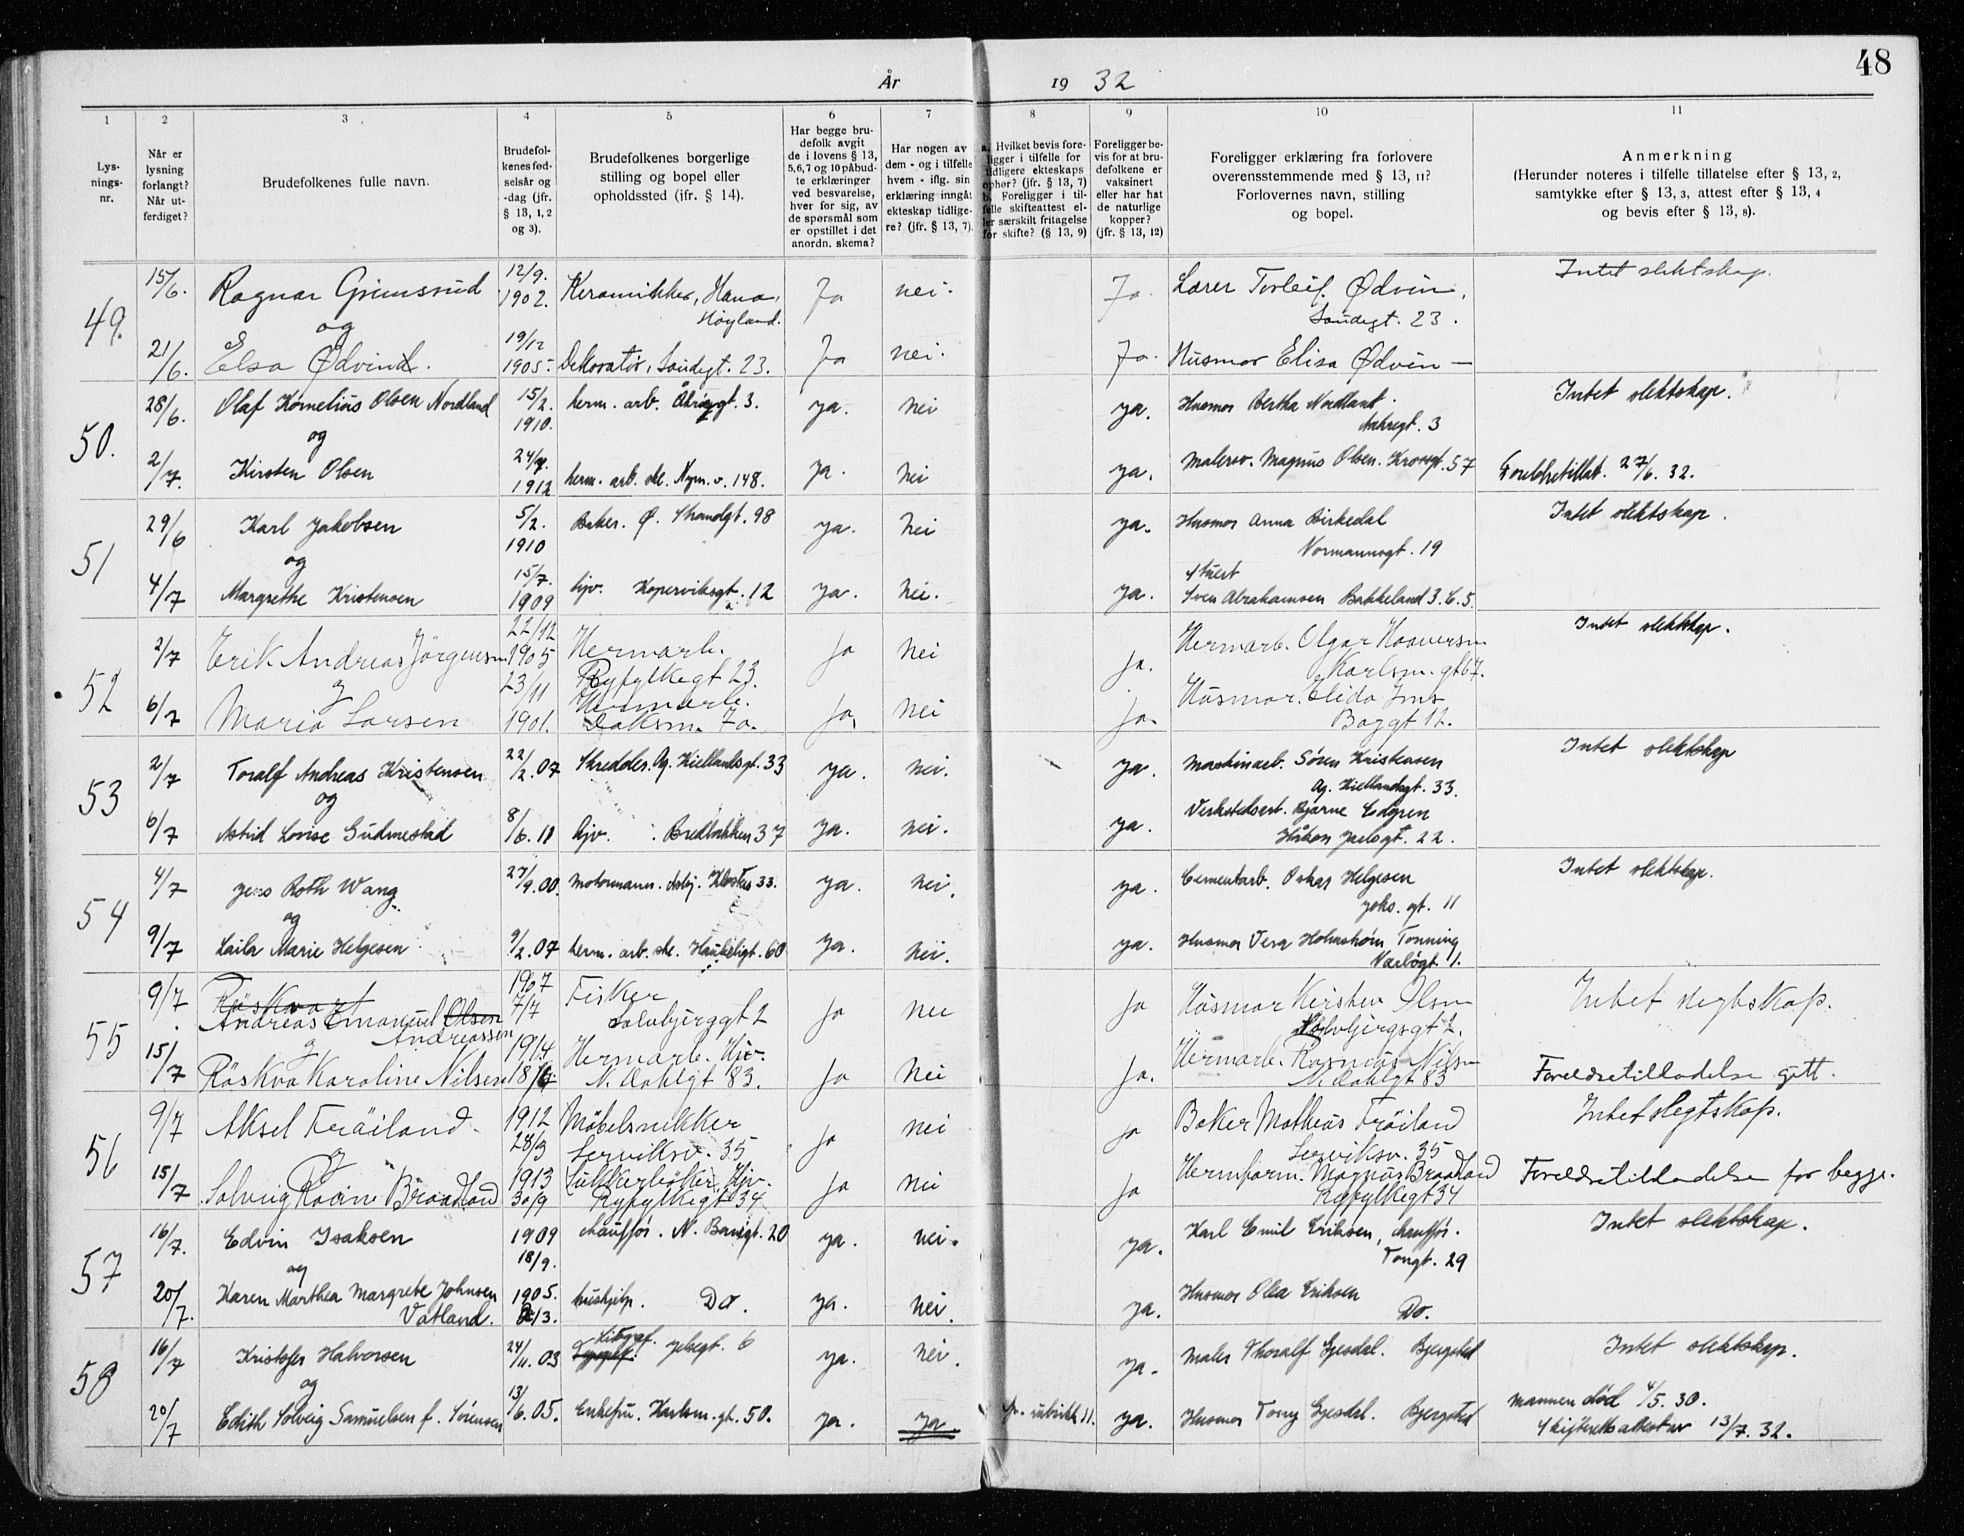 48
År 19 32
1 2 3 4 5 6 7 8 9 10 11
Lysningsnr.
Når er lysning forlangt? Når utferdiget?
Brudefolkenes fulle navn.
Brudefolkenes fødselsår og -dag (jfr. § 13, 1, 2 og 3).
Brudefolkenes borgerlige stilling og bopel eller opholdssted (jfr. § 14).
Har begge brudefolk avgit de i lovens § 13, 5,6,7 og 10 påbudte erklæringer ved besvarelse, hver for sig, av de spørsmål som er opstillet i det anordn. skema?
Har nogen av dem - og i tilfelle hvem - iflg. sin erklæring inngått ekteskap tidligere? (jfr. § 13, 7).
a. Hvilket bevis foreligger i tilfelle for tidligere ekteskaps ophør? (jfr. § 13, 7) b. Foreligger i tilfelle skifteattest eller særskilt fritagelse for skifte? (§ 13, 9)
Foreligger bevis for at brudefolkene er vaksinert eller har hat de naturlige kopper? (jfr. § 13, 12)
Foreligger erklæring fra forlovere overensstemmende med § 13, 11? Forlovernes navn, stilling og bopel.
Anmerkning (Herunder noteres i tilfelle tillatelse efter § 13, 2, samtykke efter § 13, 3, attest efter § 13, 4 og bevis efter § 13, 8).
49. 15/6. Ragnar Grimsrud 12/9. 1902. Keramikker, Hana, Høyland. Ja nei. Ja. Lærer Torleif Ødvin, Sandegt. 23. Intet slektskap.
og
21/6. Elsa Ødvin. 19/12 1905. Dekoratør, Sandegt. 23. Ja nei. Ja. Husmor Elisa Ødvin —
50. 28/6. Olaf Kornelius Olsen Nordland 15/2. 1910. herm. arb. gt. 3. ya. nei ya. Husmor Bertha Nordland. gt. 3 Intet slektskap.
og
2/7. Kirsten Olsen 1912 herm. arb. ske. v. 148. ya. nei ya. Malersv. Magnus Olsen. gt. 57 Foreldretillat. 27/6. 32.
51 29/6 Karl Jakobsen 5/2. 1910 Baker. Ø. Strandgt. 98 ya. nei ya. Husmor Anna Birkedal Normannsgt. 19 Intet slektskap.
og
4/7 Margrethe Kristensen 15/7. 1909 hjv. Koperviksgt. 12 ya. nei. ya. Stuert Sven Abrahamsen Bakkeland 3. 6. 5.
52 2/7 Erik Andreas Jörgensen 22/12 1905 Hermarb. Ryfylkegt 23. ja nei ja. Hermarb. Olgar Haaversen Karlsm.gt 67. Intet slektskap.
og
6/7 Maria Larsen 23/11 1901. Hermarb. 7a. ja, nei ja. Husmor. Elida Ims Baggt 12.
53 2/7 Toralf Andreas Kristensen 22/2. 07 Skredder. Ag. Kiellandsgt. 33 ya. nei. ya. Maskinarb. Søren Kristensen Ag. Kiellandsgt. 33. Intet slektskap
og
6/7 Astrid Lovise Gudmestad 8/6. 11 hjv. Bredbakken 37 ya. nei. ya. Verkstedsarb. Bjarne Edgren Håkon Jarlsgt. 22.
54 4/7 Jens Roth Wang 27/9. 00. Motormann. Kloster 33. ya. nei. ya. Cementarb. Oskar Helgesen Joks. gt. 11 Intet slektskap.
og
9/7 Laila Marie Helgesen 9/2. 07 herm. arb. ske. Haukeligt. 60 ya. nei. ya. Husmor Vera Tonning Varbøgt. 1.
55 9/7 Röskva Andreas Emanuel Olsen Andreassen 1907 7/7 Fisker Solvbjerggt 2 ja nei ja Husmor Kirsten Olsen Solvbjergsgt 2. Intet slegtskap.
og
15/7 Röskva Karoline Nilsen 1914 18/6 Hermarb. Hjv. N. Dahlsgt 83. ja nei ja. Hermarb. Rasmus Nilsen N. Dahlsgt 83 Foreldretilladelse gitt.
56 9/7 Aksel Fröiland. 1912 28/3 Möbelsnikker Lerviksv. 35 ja nei ja Baker Mathias Fröiland Lerviksv. 35 Intet slegtskap.
og
15/7 Solveig Braadland 1913 30/9 Sukkerkoker. Hjv. Ryfylkegt 34 ja nei ja Hermform. Magnus Braadland Ryfylkegt 34 Foreldretilladelse for begge.
57 16/7. Edvin Isaksen 1909 18/9. chauffør. N. Banegt. 20 ya. nei. ya. Karl Emil Eriksen, chauffør. Tongt. 29 Intet slektskap.
og
20/7. Karen Marthea Margrete Johnsen Vatland. 1905. /3. hushjelp. Do. ya. nei. ya. Husmor Olea Eriksen Do.
58 16/7 Kristoffer Halvorsen 24/11. 03 Typograf. Litograf. Jelsegt. 6 ya. nei. ya. Maler Thoralf Gjesdal. Bjergsted Intet slektskap.
og
20/7 Edith Solveig Samuelsen f. Sørensen 13/6. 05. Enkefru. Karlsm. gt. 50. ya. ya. rubrikk 11. ya. Husmor Tony Gjesdal. Bjergsted Mannen død 4/5. 30. Skifterettsattest av 13/7. 32.